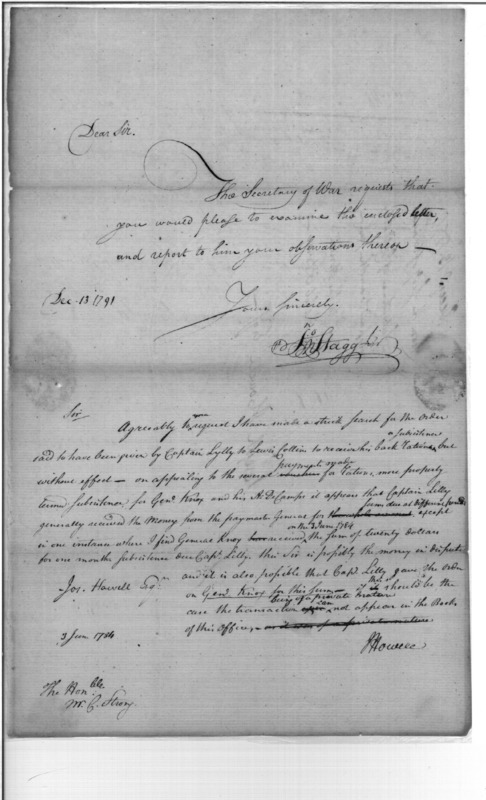 Dear Sir.
The Secretary of War requests that
you would please to examine the enclosed letter,
and report to him your observations thereon —
Dec. 13 1791
Yours Sincerely.
Jno Stagg Jr
Sir
Agreeably to request I have made a strict search for the order
a subsistence
said to have been given by Captain Lylly to Lewis Collin to receive his back rations, but
without effect — on appealing to the several payments made for rations, more properly
termed Subsistence for Genl. Knox and his A. D. Camps it appears that Captain Lilly
sum due at different periods
generally received the Money from the paymaster General for the except
on the 3d June 1784
in one instance where I find General Knox received the sum of twenty dollars
for one months subsistence due Capt. Lilly. this Sir is possibly the money in dispute
Jos. Howell Esqr.
and it is also possible that Capt. Lilly gave the order
on Genl. Knox for this Sum if this should be the
being of a private nature
case the transaction can not appear in the Books
3 June 1784
of this Office, as it was of a private nature
JHowell
The Honble.
Mr. C. Strong.